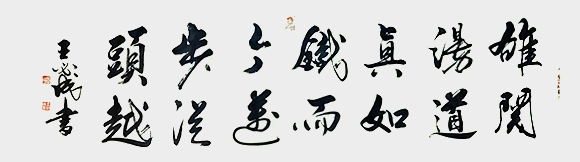 雄關
漫道
真如
鐵而
今邁
步從
頭越
王成書